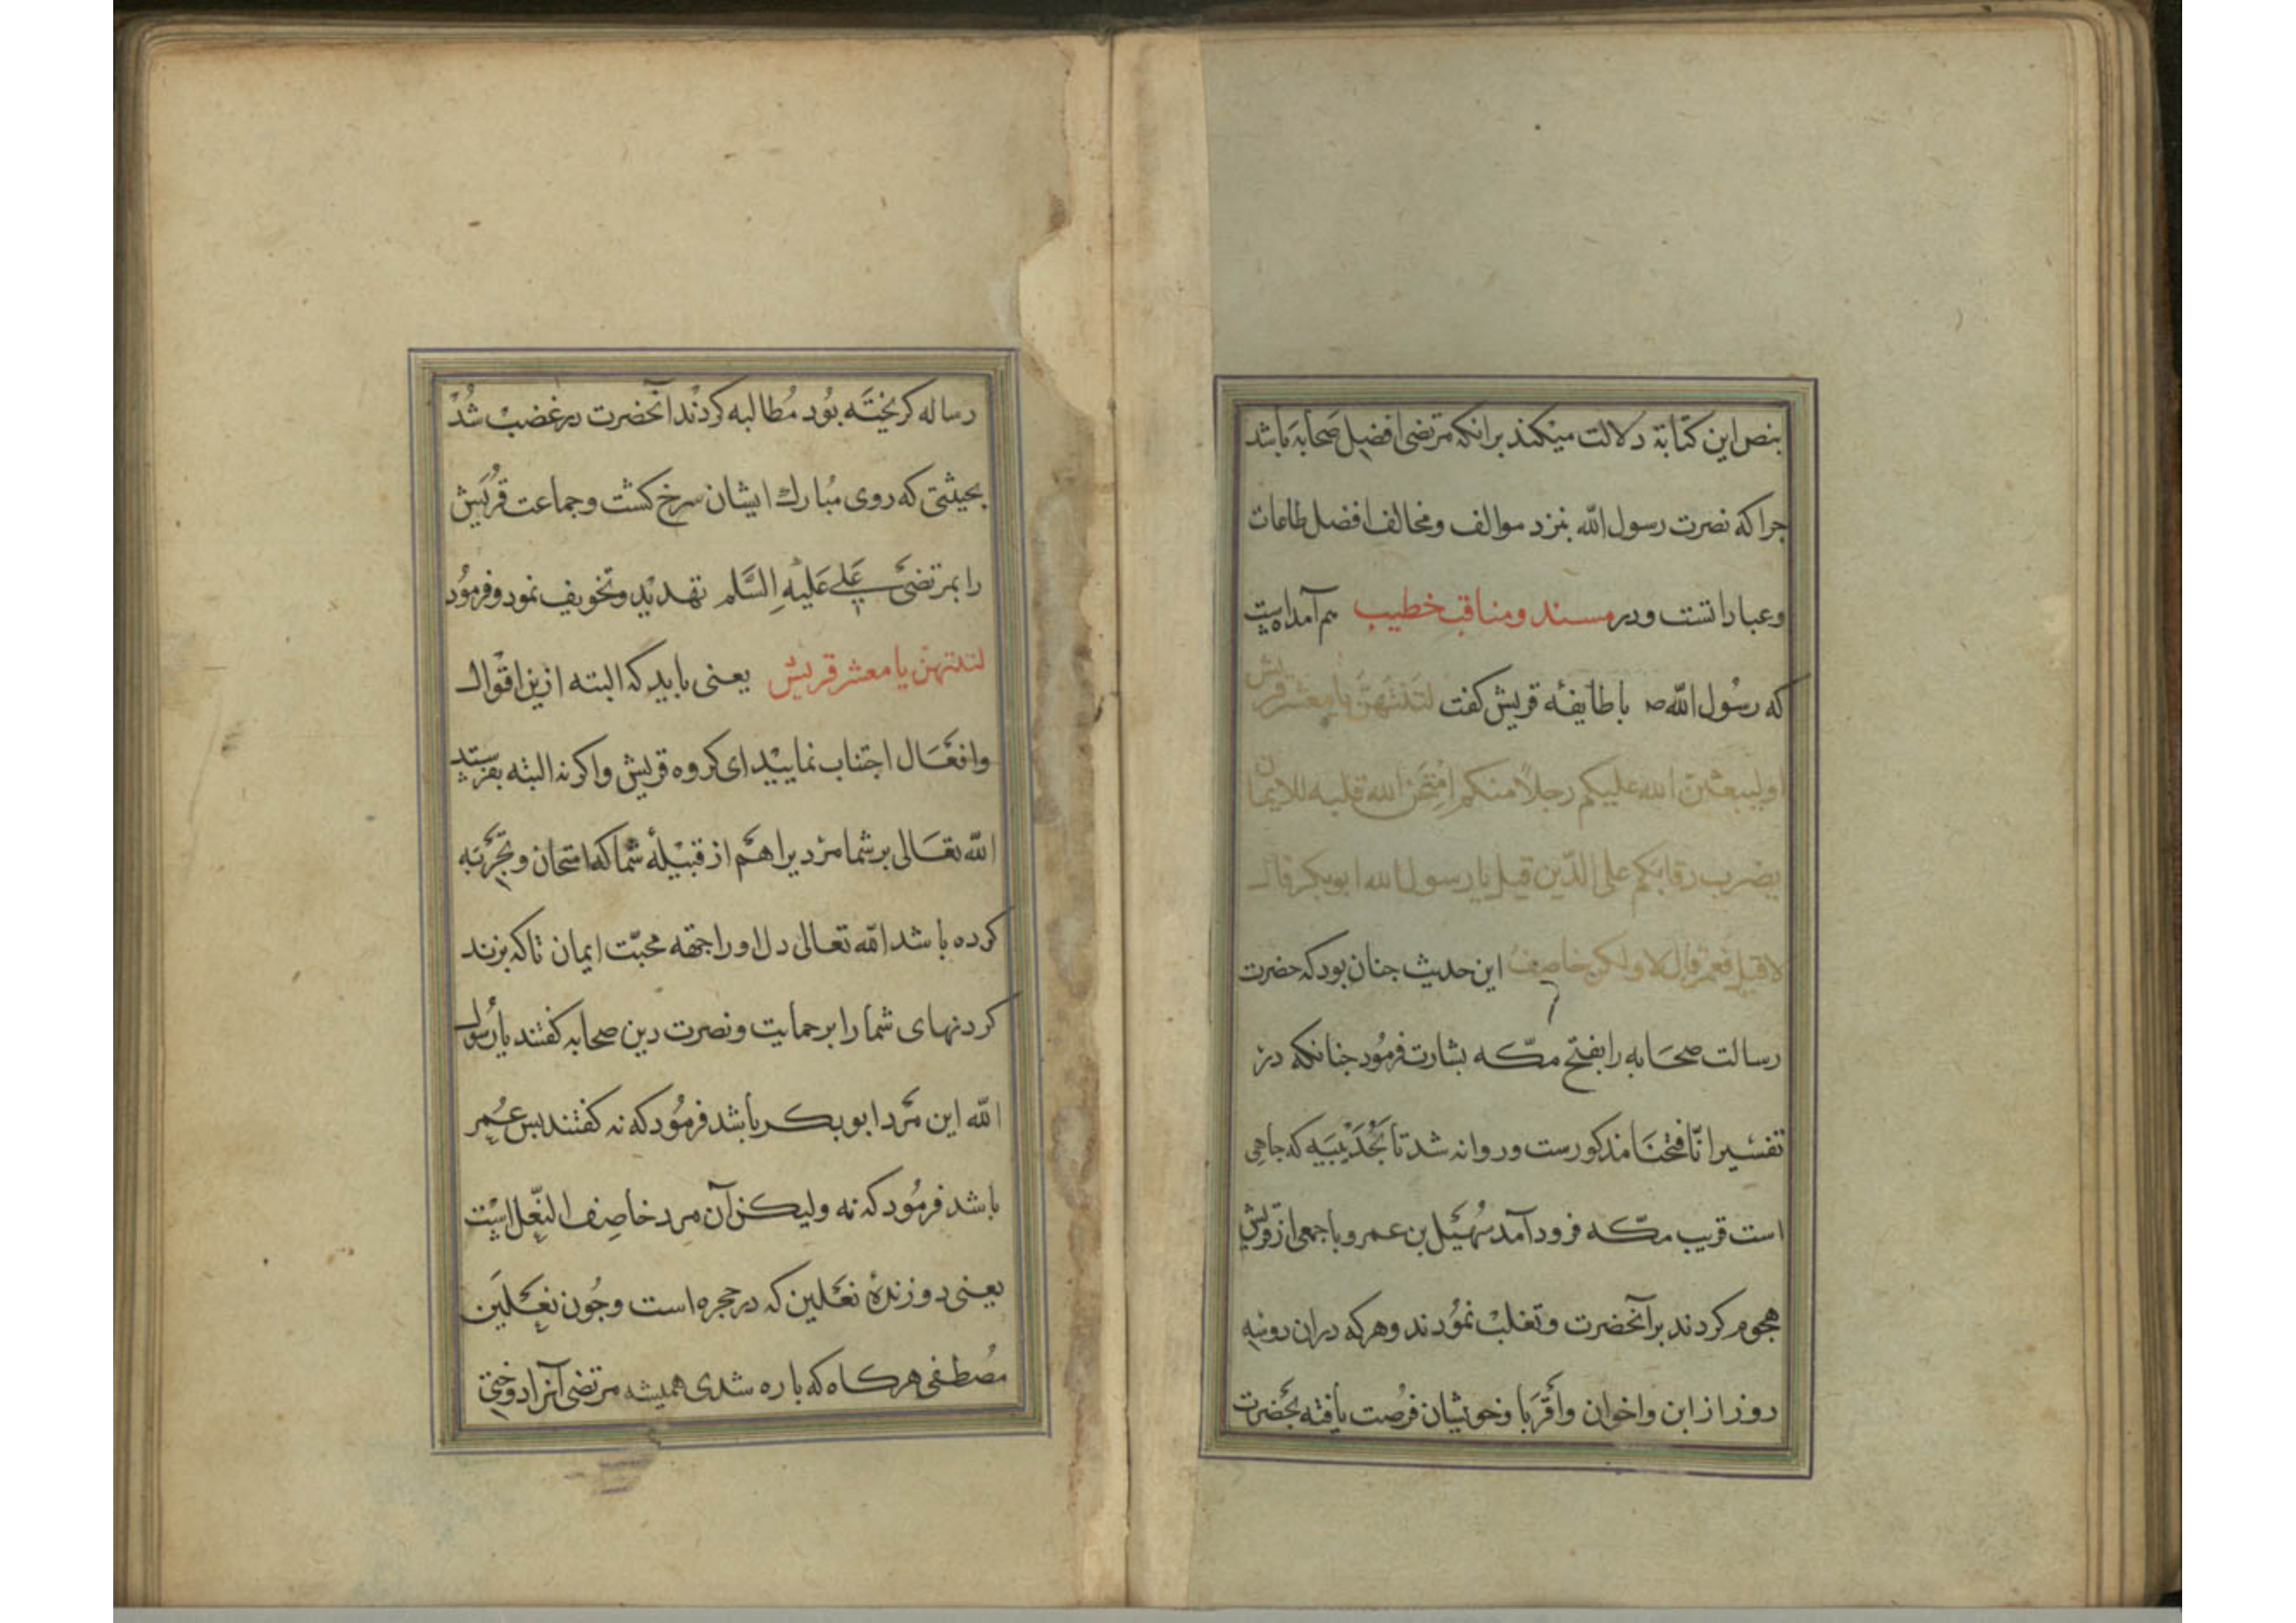 بنص این کتابة دلالت میکند برانکه مرتضی افضل صحابه باشد
جرا که نصرت رسول الله بنزد موالف ومخالف افضل طاعات
وعباداتست ودر مسند ومناقب خطیب هم آمده است
که رسول الله ص باطایفه قریش کفت لتنتهن یا معشر قریش
اولیبعثن الله علیکم رجلا منکم امتحن الله قلبه للایمان
یضرب رقابکم علی الدین قیل یا رسول الله ابوبکر قال
لا قیل فعمر قال لا ولکن خاصف این حدیث جنان بود که حضرت
رسالت صحابه را بفتح مکه بشارت فرمود جنانکه در
تفسیر انا فتحنا مذکورست وروانه شد تا بحدیبیه که جاهی
است قریب مکه فرود آمد سهیل بن عمرو با جمعی از قریش
هجوم کردند بر آنحضرت وتغلب نمودند وهرکه دران دوسه
روز از ابن واخوان واقربا وخویشان فرصت یافته بحضرت
رساله کریخته بود مطالبه کردند آنحضرت در غضب شد
بحیثتی که روی مبارک ایشان سرخ کشت وجماعت قریش
را بمرتضی علی علیه السلم تهدید وتخویف نمود وفرمود
لتنتهن یا معشر قریش یعنی باید که البته ازین اقوال
وافعال اجتناب نمایید ای کروه قریش واکر نه البته بفرستد
الله تعالی بر شما مردیرا هم از قبیلهٔ شما که امتحان وتجربه
کرده باشد الله تعالی دل اورا جهة محبت ایمان تا که بزند
کردنهای شما را بر حمایت ونصرت دین صحابه کفتند یا رسول
الله این مرد ابوبکر باشد فرمود که نه کفتند بس عمر
باشد فرمود که نه ولیکن آن مرد خاصف النعل است
یعنی دوزندهٔ نعلین که در حجره است وجون نعلین
مصطفی هرکاه که باره شدی همیشه مرتضی آنرا دوختی